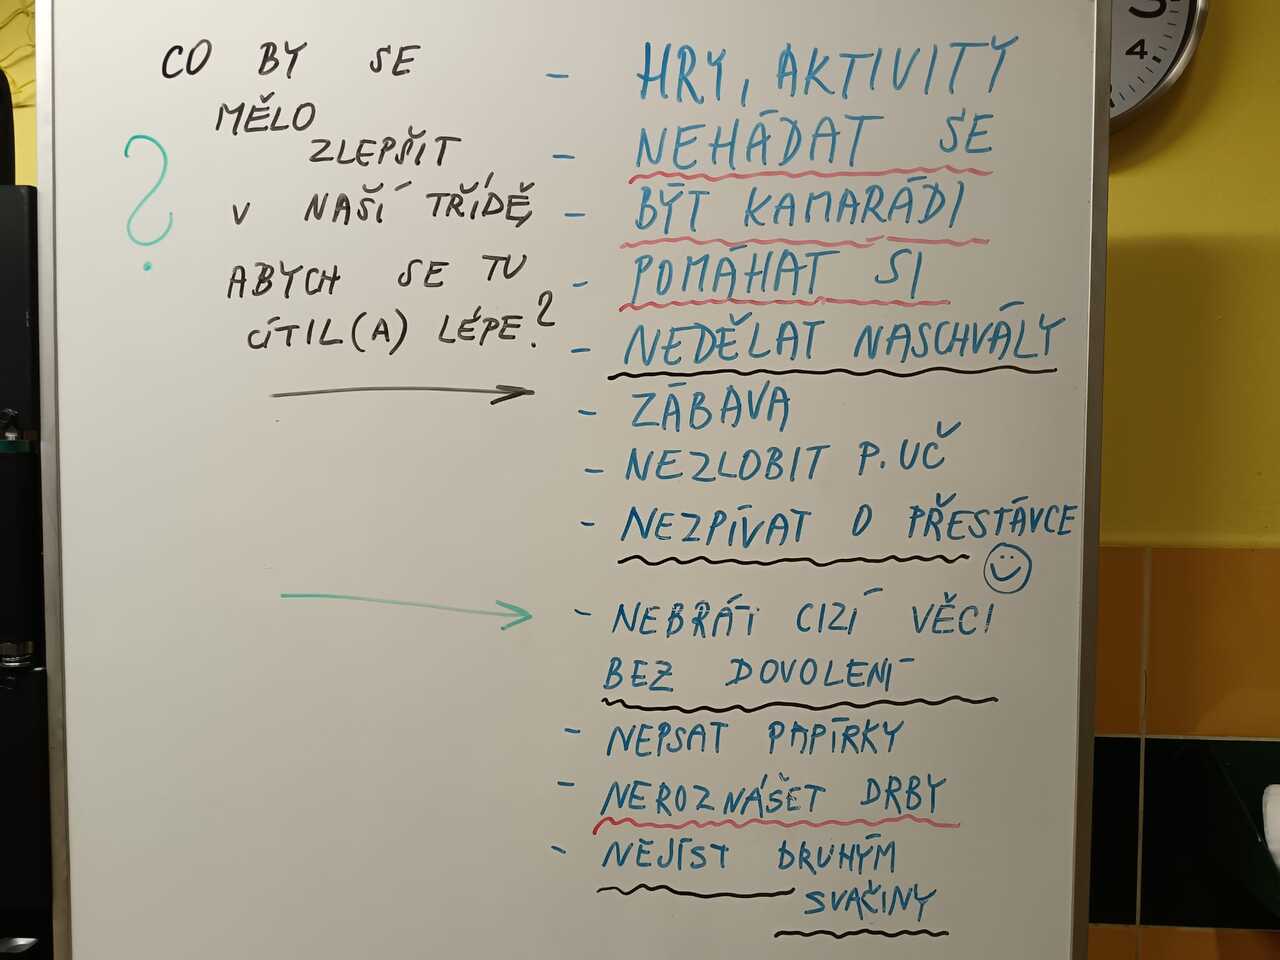 CO BY SE
MĚLO
ZLEPŠIT
V NAŠÍ TŘÍDĚ,
ABYCH SE TU
CÍTIL(A) LÉPE?
?
- HRY, AKTIVITY
- NEHÁDAT SE
- BÝT KAMARÁDI
- POMÁHAT SI
- NEDĚLAT NASCHVÁLY
- ZÁBAVA
- NEZLOBIT P. UČ
- NEZPÍVAT O PŘESTÁVCE
- NEBRÁT CIZÍ VĚCI
BEZ DOVOLENÍ
- NEPSAT PAPÍRKY
- NEROZNÁŠET DRBY
- NEJÍST DRUHÝM
SVAČINY
3
4